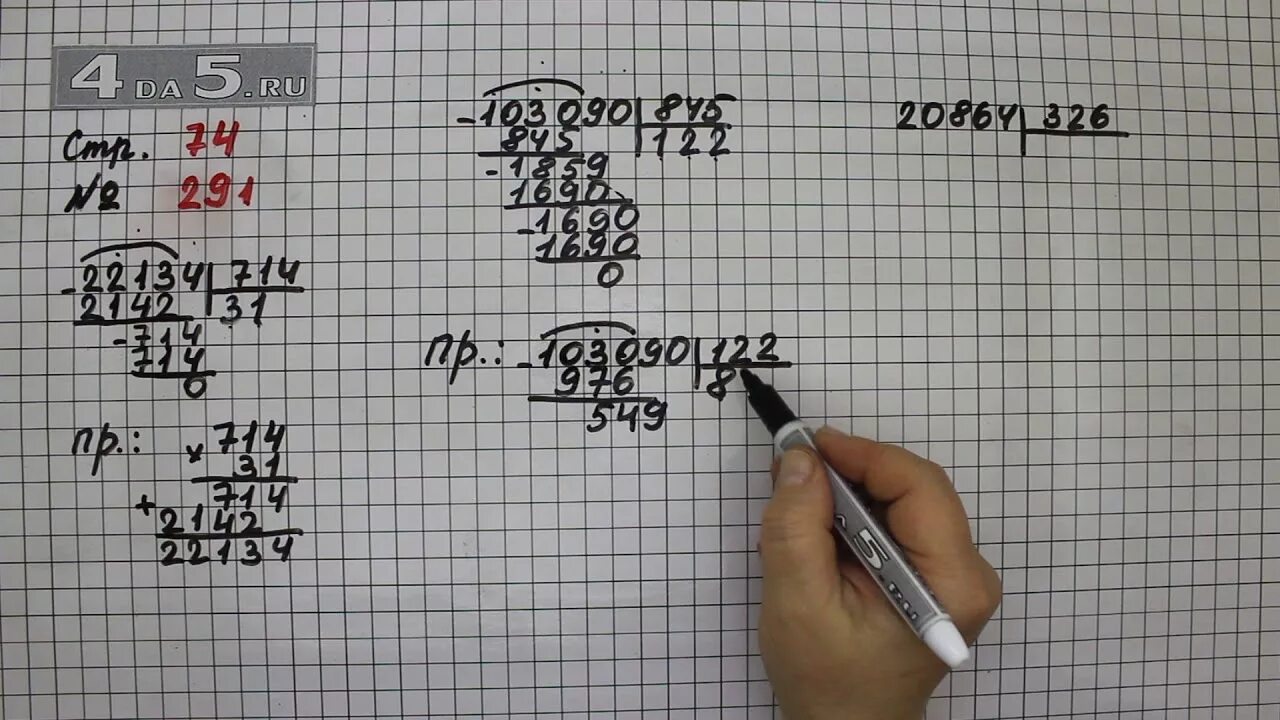 4 DA 5.RU
Стр. 74
№ 291
-22134 714
2142 31
-714
714
0
пр.:
×714
31
+714
2142
22134
-103090 845
845 122
-1859
1690
-1690
1690
0
пр.: -103090 122
976 8
549
20864 326
5.RU